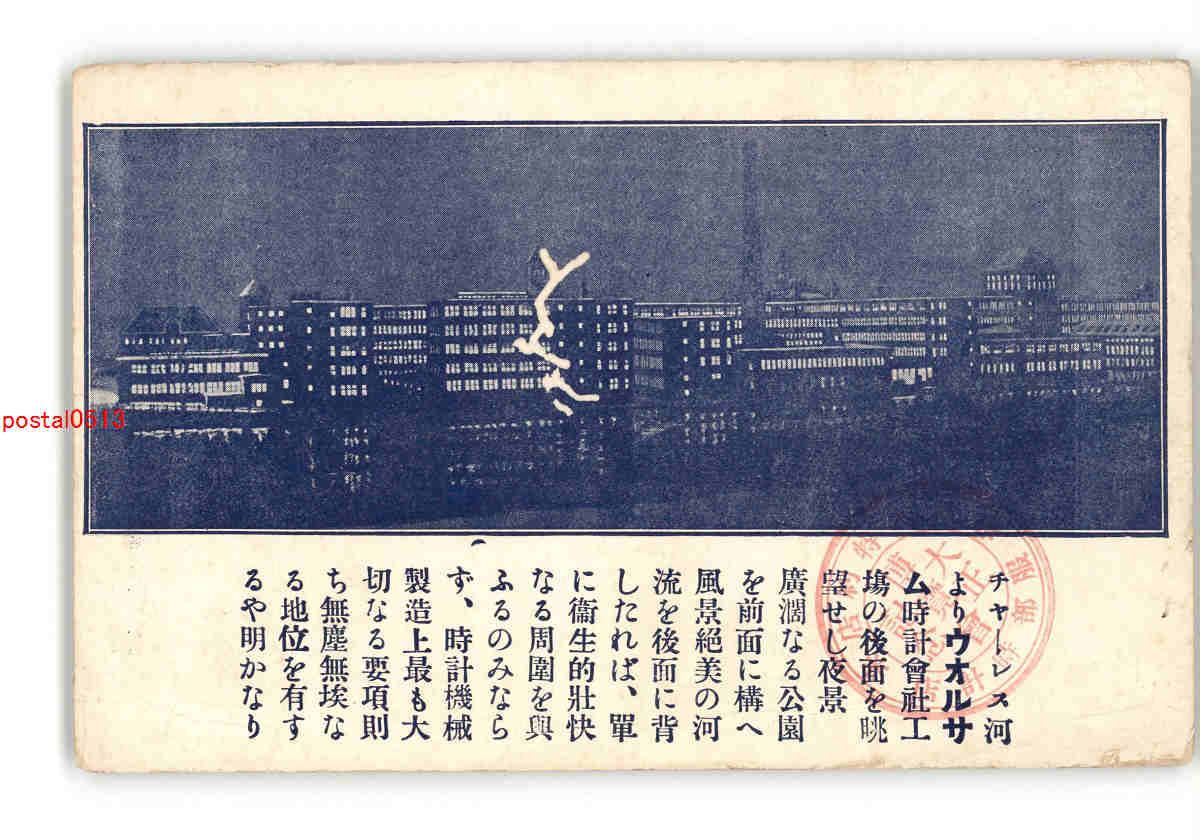 チャーレス河
よりウオルサ
ム時計會社工
塲の後面を眺
望せし夜景
廣濶なる公園
を前面に構へ
風景絕美の河
流を後面に背
したれば、單
に衞生的壯快
なる周圍を與
ふるのみなら
ず、時計機械
製造上最も大
切なる要項則
ち無塵無埃な
る地位を有す
るや明かなり
postal0513